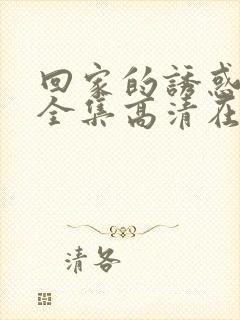 回家的誘惑
全集高清在
清各